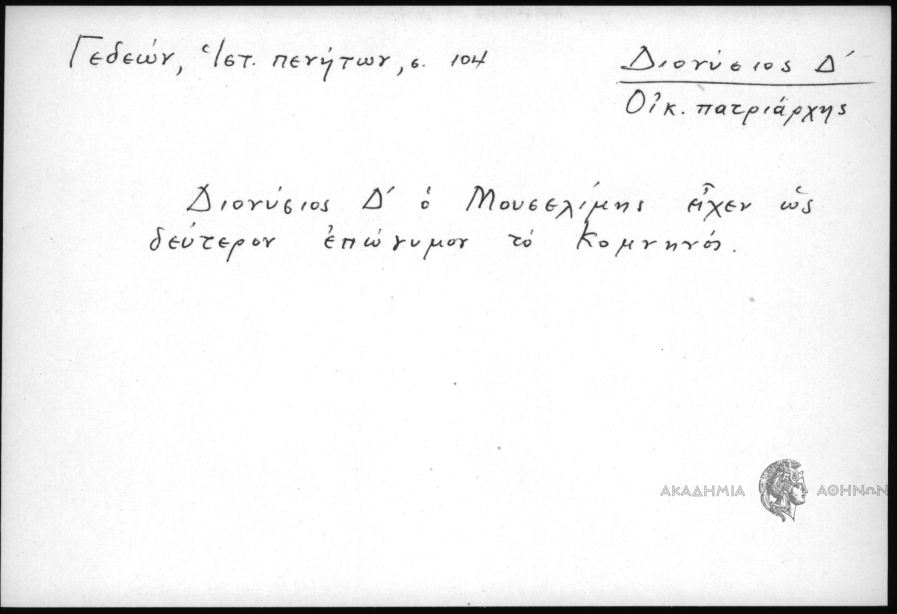 Γεδεών, Ἱστ. πενήτων, σ. 104
Διονύσιος Δ΄
Οἰκ. πατριάρχης
Διονύσιος Δ΄ ὁ Μουσελίμης εἶχεν ὡς
δεύτερον ἐπώνυμον τό Κομνηνός.
ΑΚΑΔΗΜΙΑ ΑΘΗΝΩΝ